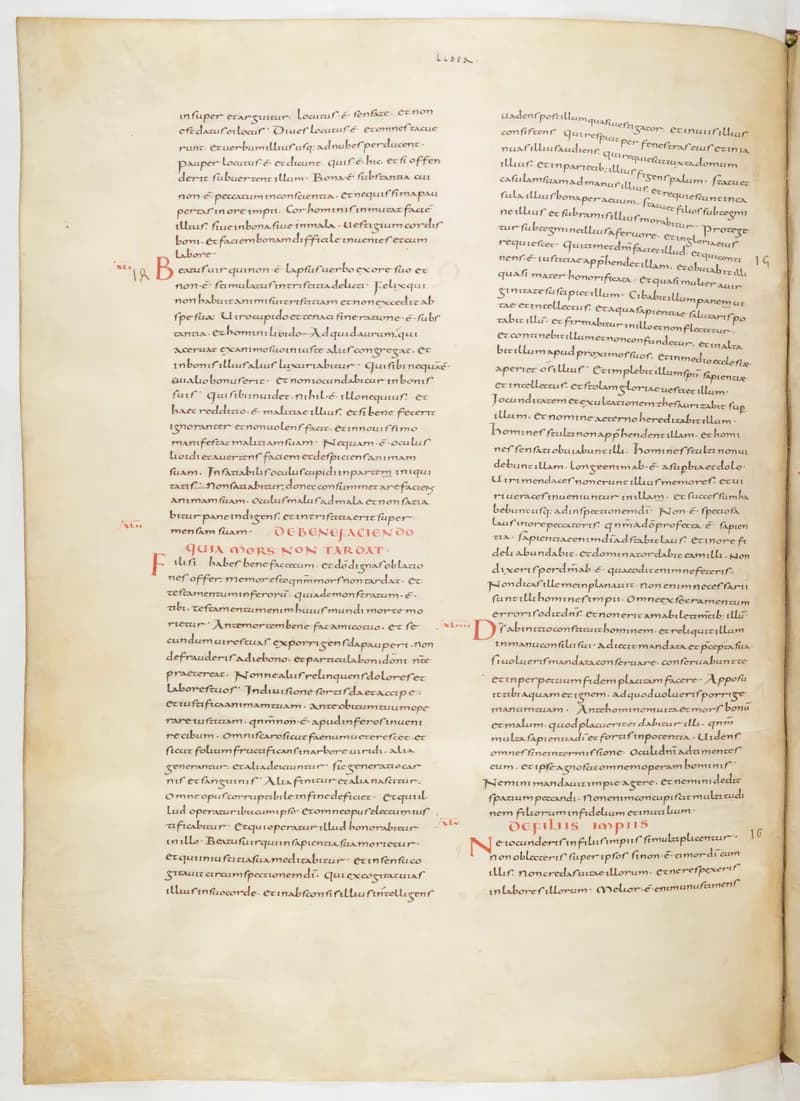 LIBER
in super et arguitur. locutus ē sensate. et non
est datus ei locus. Dives locutus ē et omnes tacue
runt. et verbum illius usq; ad nubes perducent.
pauper locutus ē et dicunt. quis ē hic. et si offen
derit subvertent illum. Bona ē substantia cui
non ē peccatum in conscientia. et nequissima pau
pertas in ore impii. Cor hominis inmutat faciē
illius. sive in bona sive in mala. Vestigium cordis
boni. et faciem bonam difficile invenies et cum
labore.
XLI 14 Beatus vir qui non ē lapsus verbo ex ore suo et
non ē stimulatus in tristitia delicti. Felix qui
non habuit animi sui tristitiam et non excidit ab
spe sua. Viro cupido et tenaci sine ratione ē subs
tantia. et homini livido Ad quid aurum; qui
acervat ex animo suo iniuste aliis congregat. et
in bonis illius alius luxuriabitur. Qui sibi nequā ē
cui alio bonus erit. et non iocundabitur in bonis
suis. Qui sibi invidet. nihil ē illo nequius. et
haec redditio ē malitiae illius. et si bene fecerit
ignoranter et non volens facit. et in novissimo
manifestat malitiam suam. Nequam ē oculus
lividi et avertens faciem et despiciens animam
suam. Insatiabilis oculus cupidi in partem iniqui
tatis. Non satiabitur donec consummet arefaciens
animam suam. oculus malus ad mala et non satia
bitur pane indigens. et in tristitia erit super
XLII mensam suam. DE BENEFACIENDO
QUIA MORS NON TARDAT.
Fili si habes benefac tecum. et dō dignas oblatio
nes offer. memor esto qnm mors non tardat. et
testamentum inferorū. quia demonstratum ē
tibi. testamentum enim huius mundi morte mo
rietur. Ante mortem benefac amico tuo. et se
cundum vires tuas exporrigens da pauperi. non
defrauderis a die bono. et particula boni doni nōn te
praetereat. Nonne aliis relinques dolores et
labores tuos. In divisione sortis da et accipe.
et iustifica animam tuam. ante obitum tuum ope
rare iustitiam. qnm non ē apud inferos inveni
re cibum. Omnis caro sicut faenum veterescet. et
sicut folium fructificans in arbore viridi. alia
generantur. et alia deiciuntur. sic generatio car
nis et sanguinis. Alia finitur et alia nascitur.
Omne opus corruptibile in fine deficiet. et qui il
lud operatur ibit cum ipso. et omne opus electum ius
tificabitur. et qui operatur illud honorabitur
in illo. Beatus vir qui in sapientia sua morietur.
et qui in iustitia sua meditabitur. et in sensu co
gitavit circumspectionem dī. Qui excogitat vias
illius in suo corde. et in absconsis illius intelligens
vadens post illum quasi vestigator. et in viis illius
consistens. Qui respicit per fenestras eius et in ia
nuas illius audiens. qui requiescit iuxta domum
illius. et in parietib; illius figens palum. statuet
casulam suam ad manus illius. et requiescunt in ca
sula illius bona per aevum. statuet filios sub tegmi
ne illius et sub ramis illius morabitur. Protege
tur sub tegmine illius a fervore. et in gloria eius
requiescet. Qui timet dm faciet illud. et qui conti
15 nens ē iustitiae apphendet illam. et obviabit illi
quasi mater honorificata. et quasi mulier a vir
ginitate suscipiet illum. Cibabit illum panem vi
tae et intellectus. et aqua sapientiae salutaris po
tabit illū. et firmabitur in illo et non flectetur.
et continebit illum et non confundetur. et inalta
bit illum apud proximos suos. et in medio ecclesiae
aperiet os illius. et implebit illum spm sapientiae
et intellectus. et stolam gloriae vestiet illum.
Iocunditatem et exultationem thesaurizabit sup
illum. et nomine aeterno hereditabit illum.
homines stulti non apphendent illam. et homi
nes sensati obviabunt illi. homines stulti non vi
debunt illam. longe enim ab ē a supbia et dolo.
Viri mendaces non erunt illius memores. et vi
ri veraces inveniuntur in illam. et successum ha
bebunt usq; ad inspectionem dī. Non ē speciosa
laus in ore peccatoris. qnm a dō profecta ē sapien
tia. sapientiae enim dī adstabit laus. et in ore fi
deli abundabit. et dominator dabit eam illi. Non
dixeris per dm ab ē quae odit enim ne feceris.
Non dicas ille me inplanavit. non enim necessarii
sunt illi homines impii. Omne exsecramentum
erroris odit dns. et non erit amabile timtib; illū.
XLIIII Ds ab initio constituit hominem. et reliquit illum
in manu consilii sui. adiecit mandata et pcepta sua
si volueris mandata conservare. conservabunt te
et in perpetuum fidem placitam facere. Apposu
it tibi aquam et ignem. ad quod volueris porrige
manum tuam. Ante hominem vita et mors bonū
et malum. quod placuerit ei dabitur illi. qnm
multa sapientia dī et fortis in potentia. Videns
omnes sine intermissione. Oculi dni ad timentes
eum. et ipse agnoscit omnem operam hominis.
Nemini mandavit impie agere. et nemini dedit
spatium peccandi. Non enim concupiscit multitudi
nem filiorum infidelium et inutilium.
XLV DE FILIIS IMPIIS
16 Ne iocunderis in filiis impiis si multiplicentur.
non oblecteris super ipsos si non ē timor dī cum
illis. Non credas vitae illorum. et ne respexeris
in labores illorum. Melior ē enim unus timens